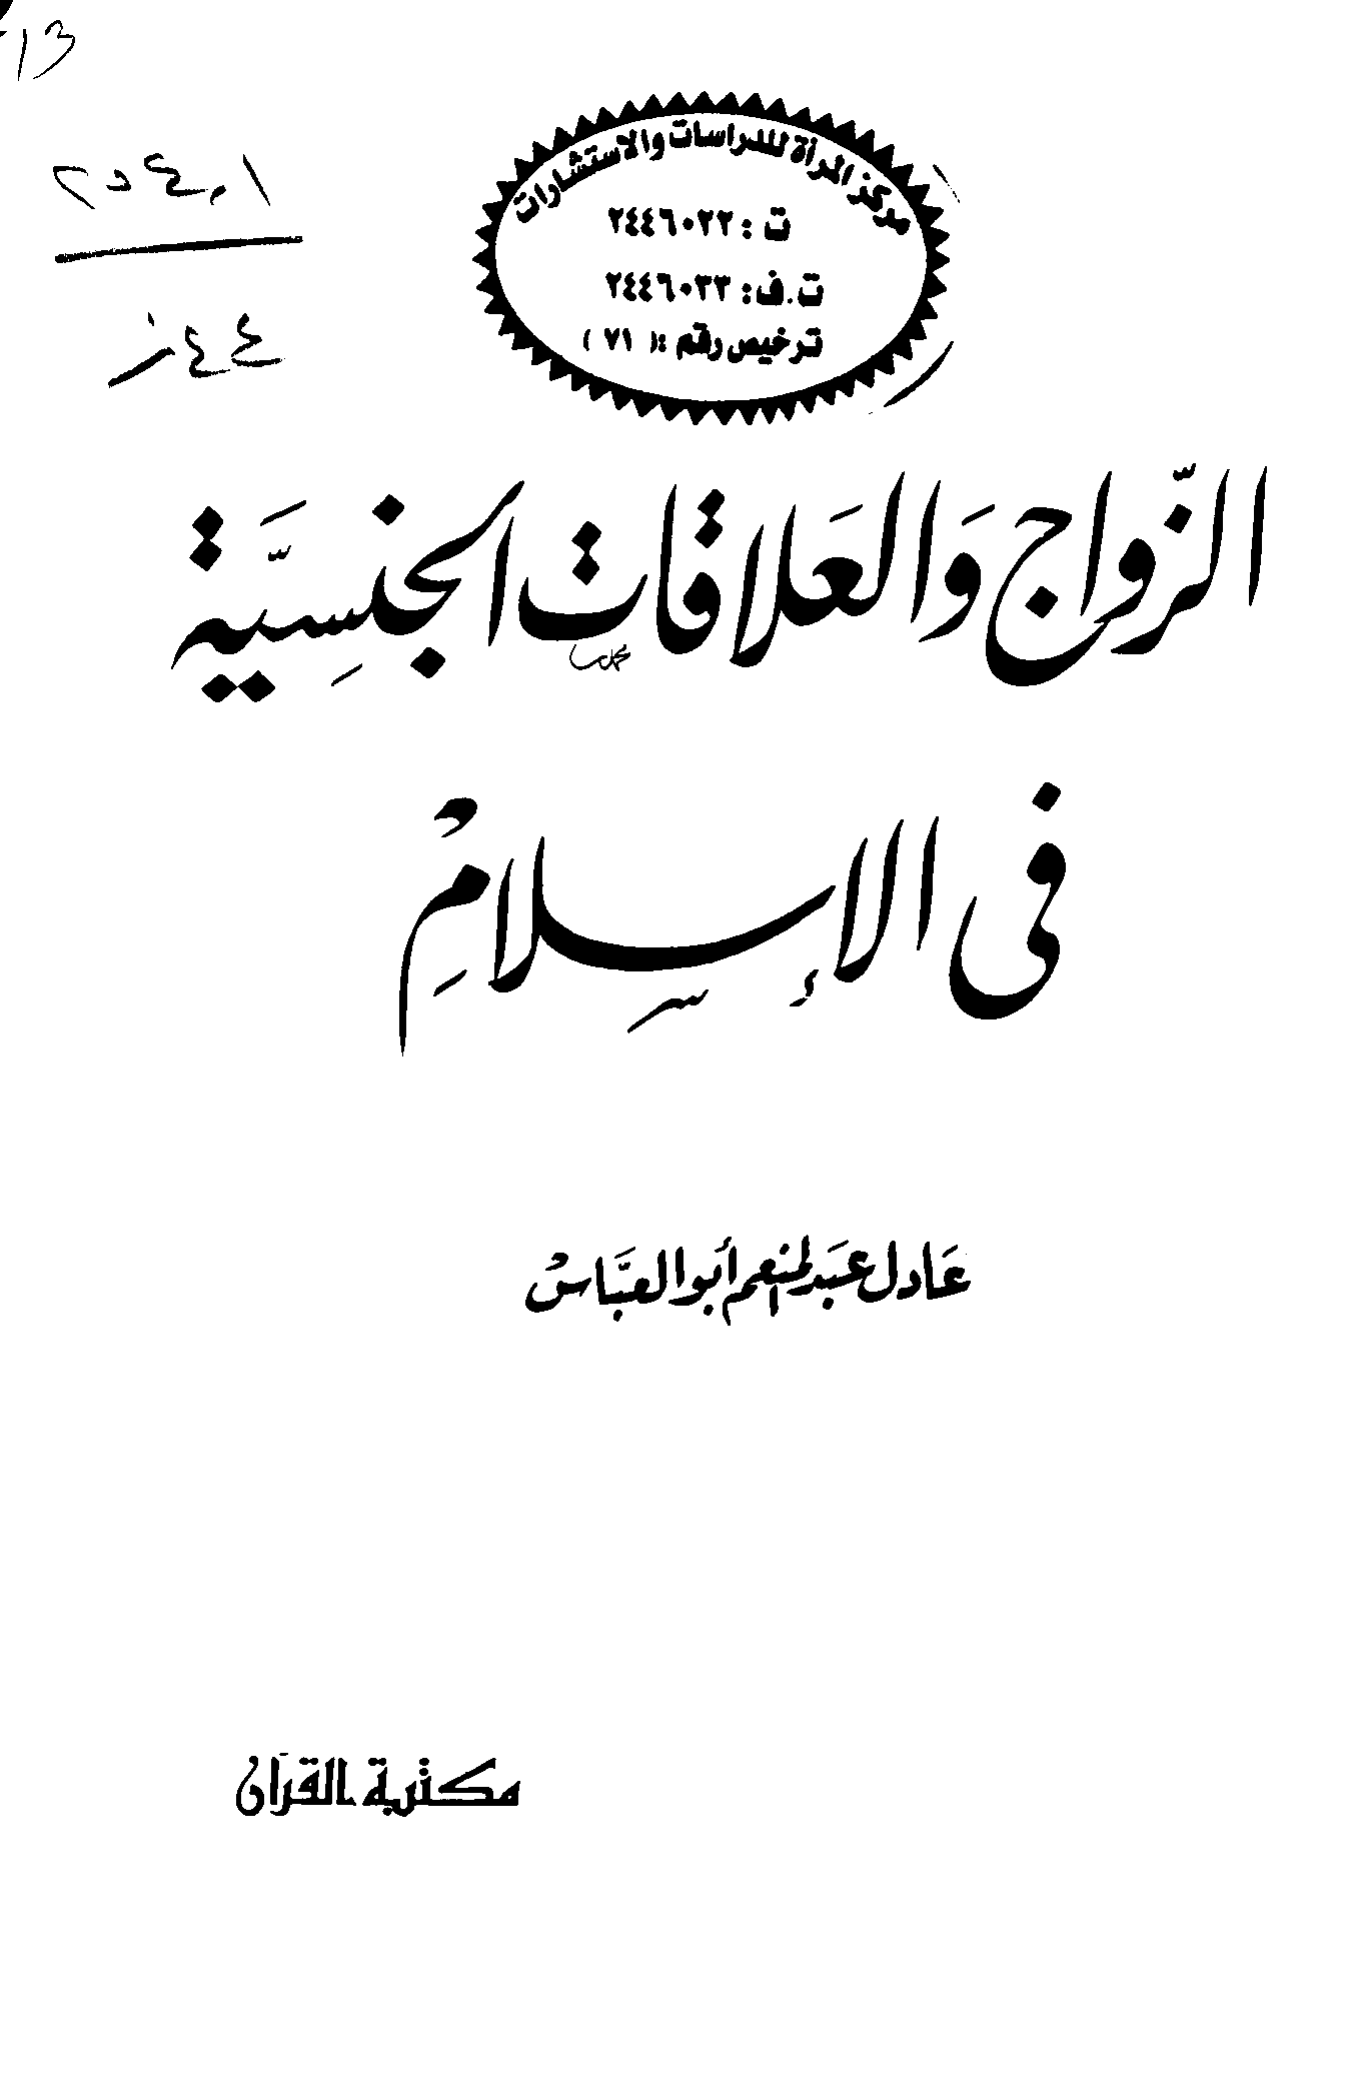 13
مركز المرأة للدراسات والاستشارات
ت : ٢٤٤٦٠٢٢
ت.ف: ٢٤٤٦٠٣٣
ترخيص رقم :( ٧١ )
٢٥٤,١
ز ٤٤
الزّواج وَالعَلاقات الجنسِيَّة
فى الإسلامِ
عَادل عبَد المنعم أبَو العبَّاسْ
مكتبة القرآن